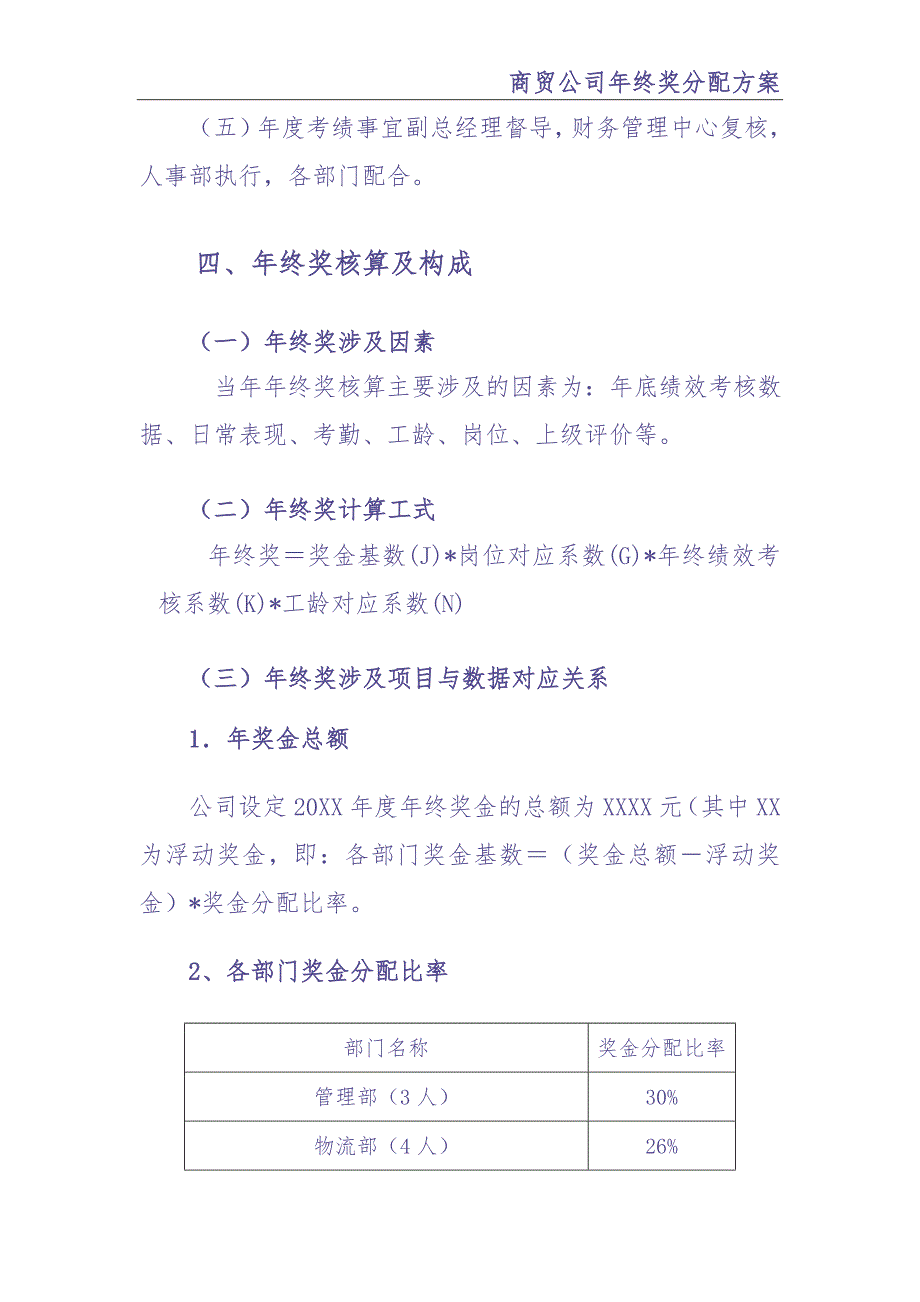 商贸公司年终奖分配方案
（五）年度考绩事宜副总经理督导，财务管理中心复核，
人事部执行，各部门配合。
四、年终奖核算及构成
（一）年终奖涉及因素
当年年终奖核算主要涉及的因素为：年底绩效考核数
据、日常表现、考勤、工龄、岗位、上级评价等。
（二）年终奖计算工式
年终奖＝奖金基数(J)*岗位对应系数(G)*年终绩效考
核系数(K)*工龄对应系数(N)
（三）年终奖涉及项目与数据对应关系
1．年奖金总额
公司设定 20XX 年度年终奖金的总额为 XXXX 元（其中 XX
为浮动奖金，即：各部门奖金基数＝（奖金总额－浮动奖
金）*奖金分配比率。
2、各部门奖金分配比率
部门名称 奖金分配比率
管理部（3 人） 30%
物流部（4 人） 26%